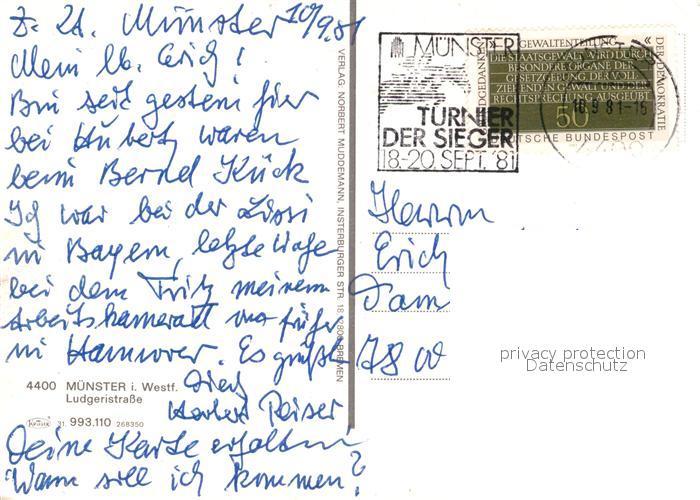 Z. Zt. Münster 10/9.81
Mein lb. Erich!
Bin seit gestern hier
bei Hubert, waren
beim Bernd Kück
Ich war bei der Lissi
in Bayern, letzte Tage
bei dem Fritz meinem
Arbeitskamerad von früher
in Hannover. Es grüßt
Dich
Herbert
Deine Karte erhalten
Wann soll ich kommen?
Herrn
Erich
78 00
MÜNSTER
TURNIER
DER SIEGER
18-20. SEPT. '81
GEWALTENTEILUNG
DIE STAATSGEWALT WIRD DURCH
BESONDERE ORGANE DER
GESETZGEBUNG DER VOLL
ZIEHENDEN GEWALT UND DER
RECHTSPRECHUNG AUSGEÜBT
50
DER DEMOKRATIE
TSCHE BUNDESPOST
10.9.81-15
VERLAG: NORBERT MUDDEMANN, INSTERBURGER STR. 18, 2800 BREMEN
4400 MÜNSTER i. Westf.
Ludgeristraße
31. 993.110 268350
privacy protection
Datenschutz